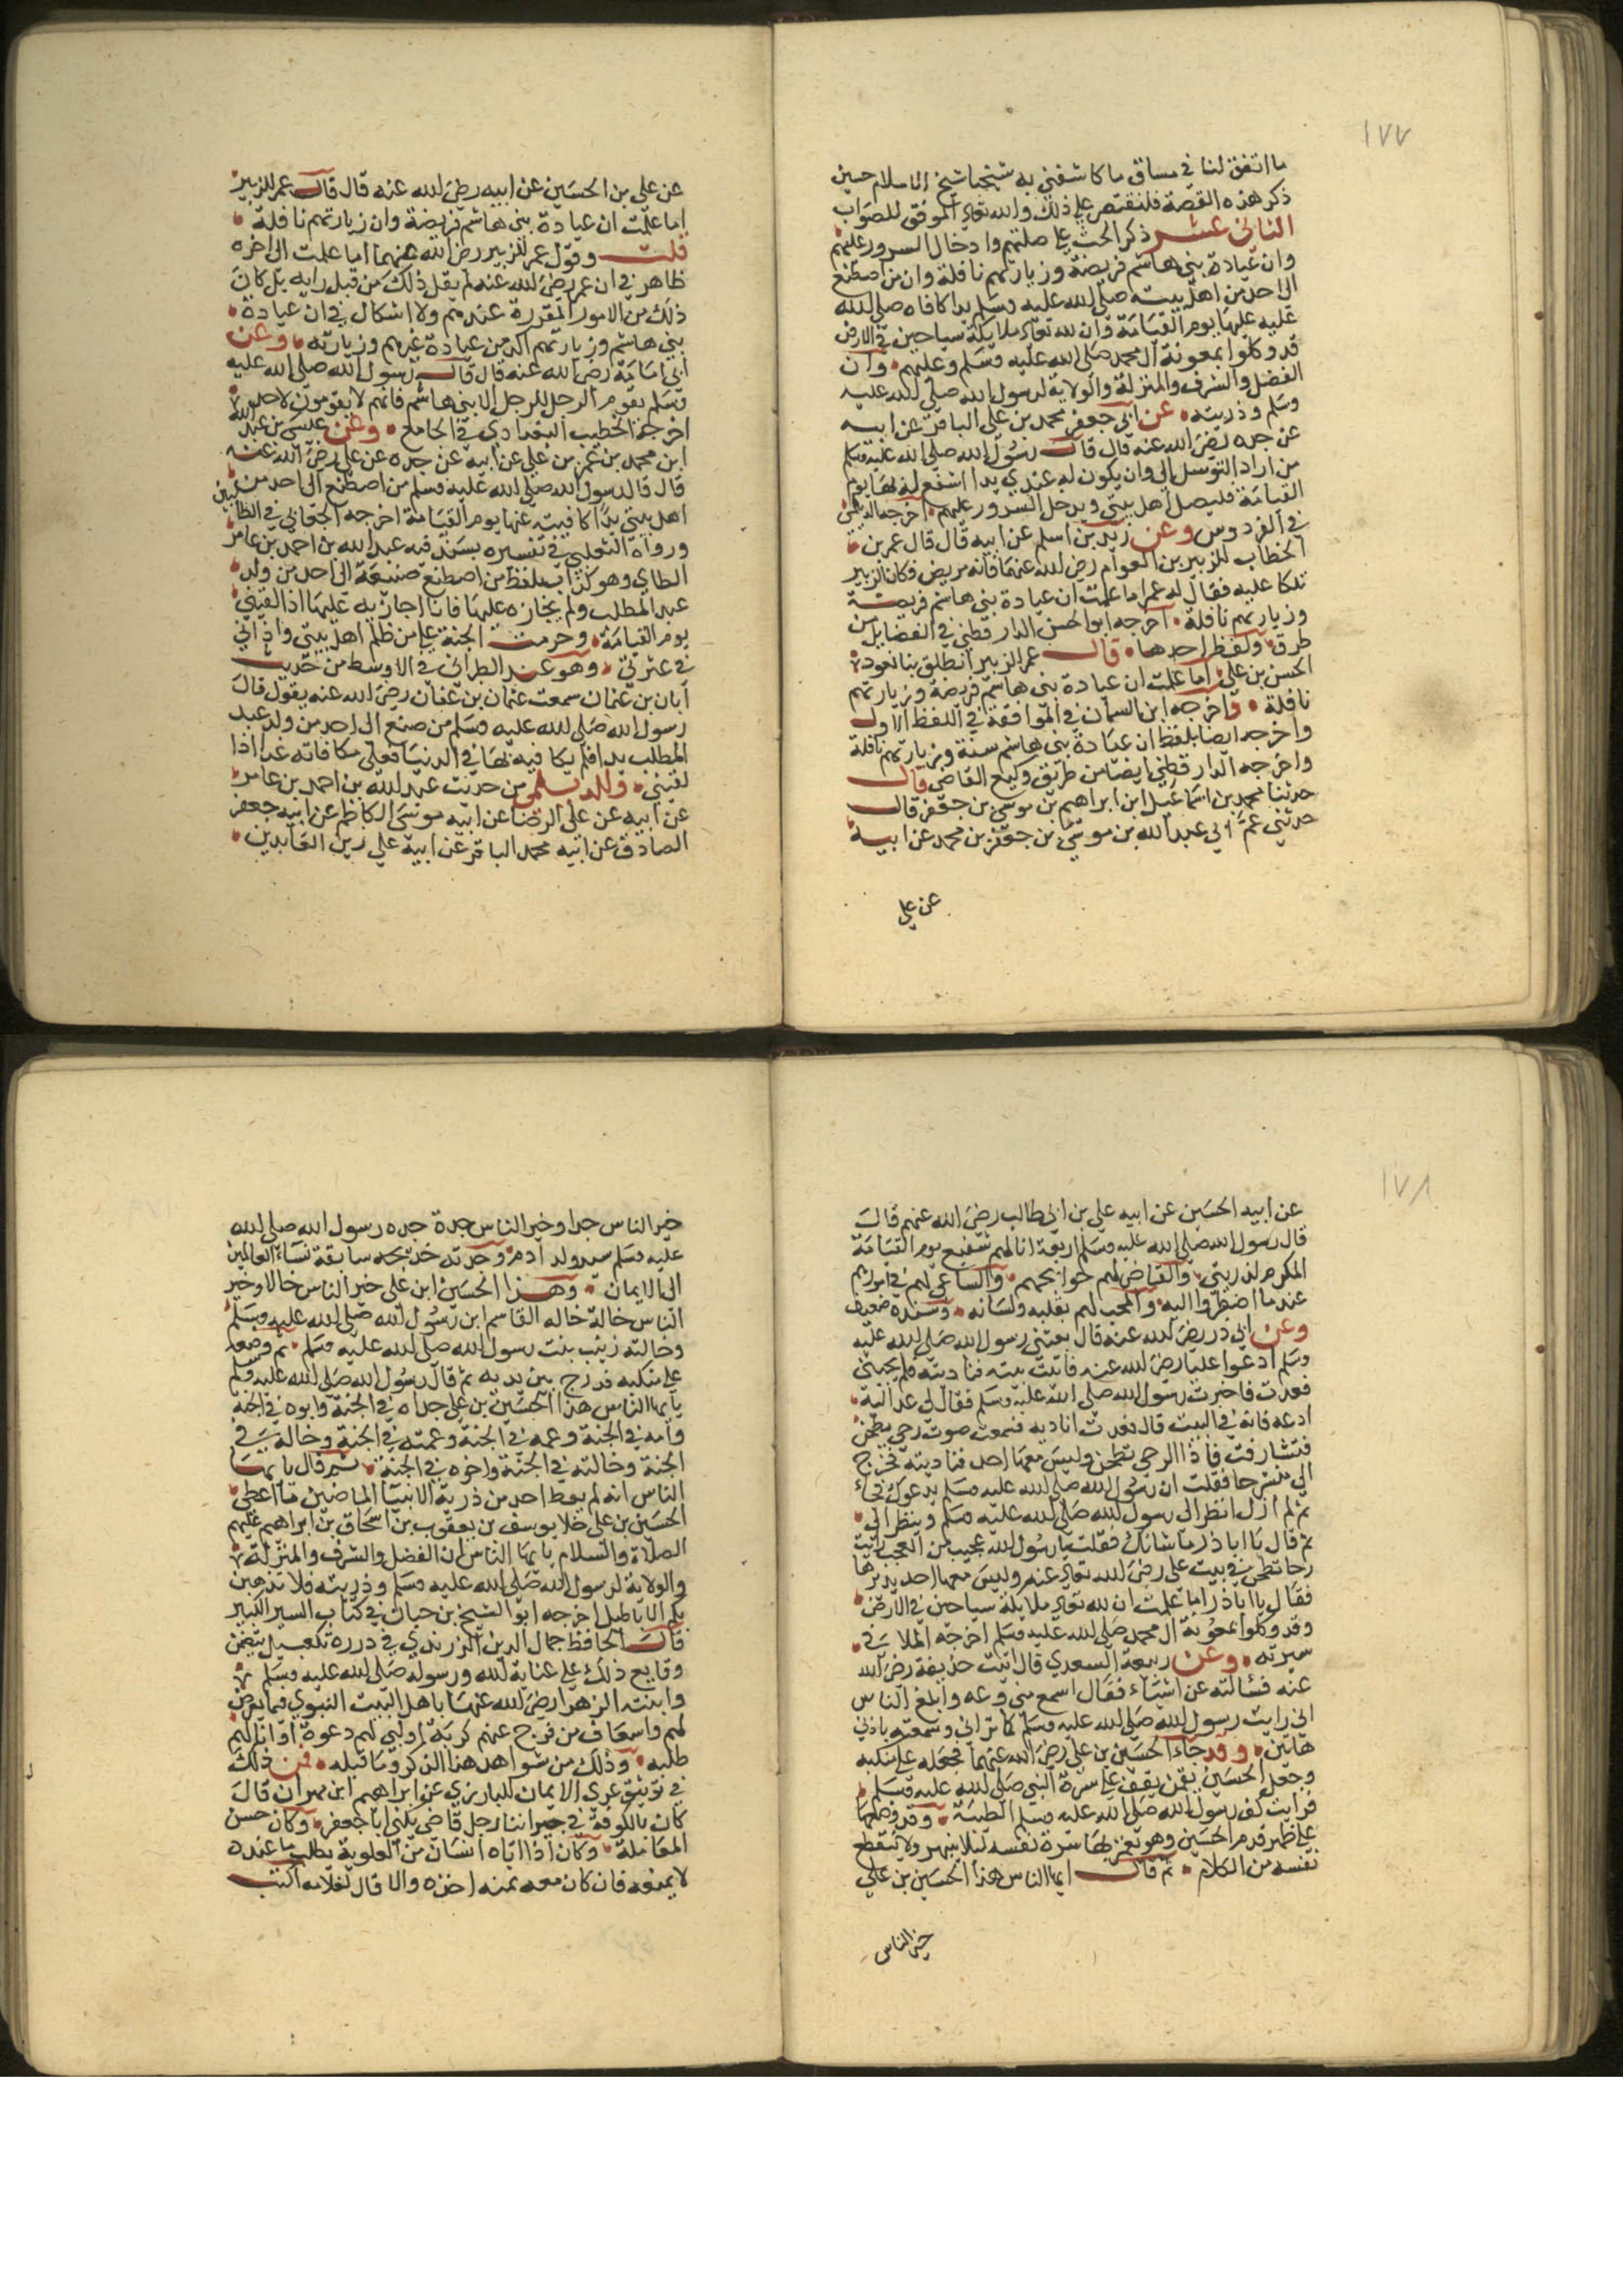 ١٧٧
ما اتفق لنا في مساق ما كاشفني به شيخنا شيخ الاسلام حين
ذكر هذه القصة فلنقتصر على ذلك والله تعالى الموفق للصواب
الثاني عشر ذكر الحث على صلتهم وادخال السرور عليهم
وان عيادة بني هاشم فريضة وزيارتهم نافلة وان من اصطنع
الى احد من اهل بيته صلى الله عليه وسلم يدا كافاه صلى الله
عليه عليها يوم القيامة وان لله تعالى ملايكة سياحين في الارض
قد وكلوا بمعونة ال محمد صلى الله عليه وسلم وعليهم وان
الفضل والشرف والمنزلة والولاية لرسول الله صلى الله عليه
وسلم وذريته عن ابي جعفر محمد بن علي الباقر عن ابيه
عن جده رضي الله عنه قال قال رسول الله صلى الله عليه وسلم
من اراد التوسل الي وان يكون له عندي يدا اشفع له بها يوم
القيامة فليصل اهل بيتي ويدخل السرور عليهم اخرجه الديلمي
في الفردوس وعن زيد بن اسلم عن ابيه قال قال عمر بن
الخطاب للزبير بن العوام رضي الله عنهما فانه مريض فكان الزبير
تلكا عليه فقال له عمر اما علمت ان عيادة بني هاشم فريضة
وزيارتهم نافلة اخرجه ابو الحسن الدارقطني في الفضايل من
طرق ولفظ احدها قال عمر للزبير انطلق بنا نعود
الحسن بن علي اما علمت ان عيادة بني هاشم فريضة وزيارتهم
نافلة واخرجه ابن السمان في الموافقة في اللفظ الاول
واخرجه ايضا بلفظ ان عيادة بني هاشم سنة وزيارتهم نافلة
واخرجه الدارقطني ايضا من طريق وكيع القاضي قال
حدثنا محمد بن اسماعيل ابن ابراهيم بن موسى بن جعفر قال
حدثني عم ابي عبد الله بن موسى بن جعفر بن محمد عن ابيه
عن علي
عن علي بن الحسين عن ابيه رضي الله عنه قال قال عمر للزبير
اما علمت ان عيادة بني هاشم فريضة وان زيارتهم نافلة
قلت وقول عمر للزبير رضي الله عنهما اما علمت الى اخره
ظاهر في ان عمر رضي الله عنه لم يقل ذلك من قبل رايه بل كان
ذلك من الامور المقررة عندهم ولا اشكال في ان عيادة
بني هاشم وزيارتهم اكد من عيادة غيرهم وزيارته وعن
ابي امامة رضي الله عنه قال قال رسول الله صلى الله عليه
وسلم يقوم الرجل للرجل الا بني هاشم فانهم لا يقومون لاحد
اخرجه الخطيب البغدادي في الجامع وعن عيسى بن عبد الله
ابن محمد بن عمر بن علي عن ابيه عن جده عن علي رضي الله عنه
قال قال رسول الله صلى الله عليه وسلم من اصطنع الى احد من
اهل بيتي يدا كافيته عنها يوم القيامة اخرجه الجعابي في الطالبيين
ورواه الثعلبي في تفسيره بسند فيه عبد الله بن احمد بن عامر
الطاي وهو كذاب بلفظ من اصطنع صنيعة الى احد من ولد
عبد المطلب ولم يجازه عليها فانا اجازيه عليها اذا لقيني
يوم القيامة وحرمت الجنة على من ظلم اهل بيتي واذاني
في عترتي وهو عند الطبراني في الاوسط من حديث
ابان بن عثمان سمعت عثمان بن عفان رضي الله عنه يقول قال
رسول الله صلى الله عليه وسلم من صنع الى احد من ولد عبد
المطلب يدا فلم يكافيه بها في الدنيا فعلي مكافاته غدا اذا
لقيني وللديلمي من حديث عبد الله بن احمد بن عامر
عن ابيه عن علي الرضا عن ابيه موسى الكاظم عن ابيه جعفر
الصادق عن ابيه محمد الباقر عن ابيه علي زين العابدين
١٧٨
عن ابيه الحسين عن ابيه علي بن ابي طالب رضي الله عنهم قال
قال رسول الله صلى الله عليه وسلم اربعة انا لهم شفيع يوم القيامة
المكرم لذريتي والقاضي لهم حوايجهم والساعي لهم في امورهم
عند ما اضطروا اليه والمحب لهم بقلبه ولسانه وسنده ضعيف
وعن ابي ذر رضي الله عنه قال بعثني رسول الله صلى الله عليه
وسلم ادعوا عليا رضي الله عنه فاتيت بيته فناديته فلم يجبني
فعدت فاخبرت رسول الله صلى الله عليه وسلم فقال لي عد اليه
ادعه فانه في البيت قال فعدت اناديه فسمعت صوت رحى يطحن
فتشارفت فاذا الرحى تطحن وليس معها احد فناديته فخرج
الي منشرحا فقلت ان رسول الله صلى الله عليه وسلم يدعوك فجاء
ثم لم ازل انظر الى رسول الله صلى الله عليه وسلم وينظر الي
ثم قال يا ابا ذر ما شانك فقلت يا رسول الله عجيب من العجب رايت
رحا تطحن في بيت علي رضي الله تعالى عنه وليس معها احد يديرها
فقال يا ابا ذر اما علمت ان لله تعالى ملايكة سياحين في الارض
وقد وكلوا بمعونة ال محمد صلى الله عليه وسلم اخرجه الملا في
سيرته وعن ربيعة السعدي قال اتيت حذيفة رضي الله
عنه فسالته عن اشياء فقال اسمع مني وعه وابلغ الناس
اني رايت رسول الله صلى الله عليه وسلم كما تراني وسمعته باذني
هاتين وقد جاء الحسين بن علي رضي الله عنهما فجعله على منكبه
وجعل الحسين بقمن يقف على سرة النبي صلى الله عليه وسلم
فرايت كف رسول الله صلى الله عليه وسلم الطيبة وقد وضعها
على ظهر قدم الحسين وهو يغمز بها سرة نفسه لئلا ينبهر ولا ينقطع
نفسه من الكلام ثم قال ايها الناس هذا الحسين بن علي
خير الناس
خير الناس جدا وخير الناس جدة جده رسول الله صلى الله
عليه وسلم سيد ولد ادم وجدته خديجه سابقة نساء العالمين
الى الايمان وهذا الحسين ابن علي خير الناس خالا وخير
الناس خالة خاله القاسم ابن رسول الله صلى الله عليه وسلم
وخالته زينب بنت رسول الله صلى الله عليه وسلم ثم وضعه
على منكبه فدرج بين يديه ثم قال رسول الله صلى الله عليه وسلم
يا ايها الناس هذا الحسين بن علي جداه في الجنة وابوه في الجنة
وامه في الجنة وعمه في الجنة وعمته في الجنة وخاله في
الجنة وخالته في الجنة واخوه في الجنة ثم قال يا ايها
الناس انه لم يعط احد من ذرية الانبيا الماضين ما اعطي
الحسين بن علي خلا يوسف بن يعقوب بن اسحاق بن ابراهيم عليهم
الصلاة والسلام يا ايها الناس ان الفضل والشرف والمنزلة
والولاية لرسول الله صلى الله عليه وسلم وذريته فلا تذهبن
بكم الاباطيل اخرجه ابو الشيخ بن حبان في كتاب السير الكبير
قال الحافظ جمال الدين الزرندي في درره تكعيبل يتضمن
وقايع ذلك على عناية الله ورسوله صلى الله عليه وسلم ثم
وابنته الزهرا رضي الله عنها باهل البيت النبوي فيما يعرض
لهم واسعاف من فرج عنهم كربة او لبى لهم دعوة او انالهم
طلبه وذلك من شواهد هذا الذكر وما قبله فمن ذلك
في توثيق عرى الايمان للبارزي عن ابراهيم ابن مهران قال
كان بالكوفة في جيراننا رجل قاضي يكنى ابا جعفر وكان حسن
المعاملة وكان اذا اتاه انسان من العلوية يطلب ما عنده
لا يمنعه فان كان معه ثمنه اخذه والا قال لغلامه اكتب